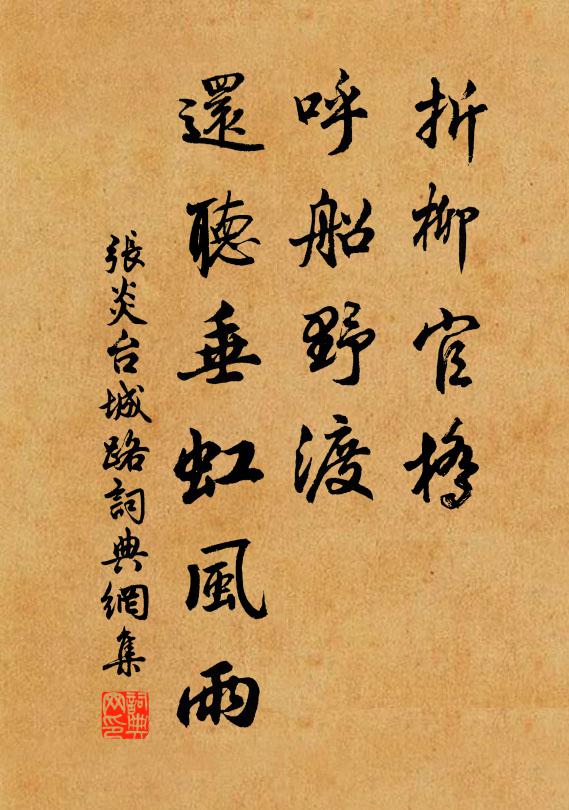 折柳官橋
呼船野渡
還聽垂虹風雨
張炎台城路詞典網集
詞典網印